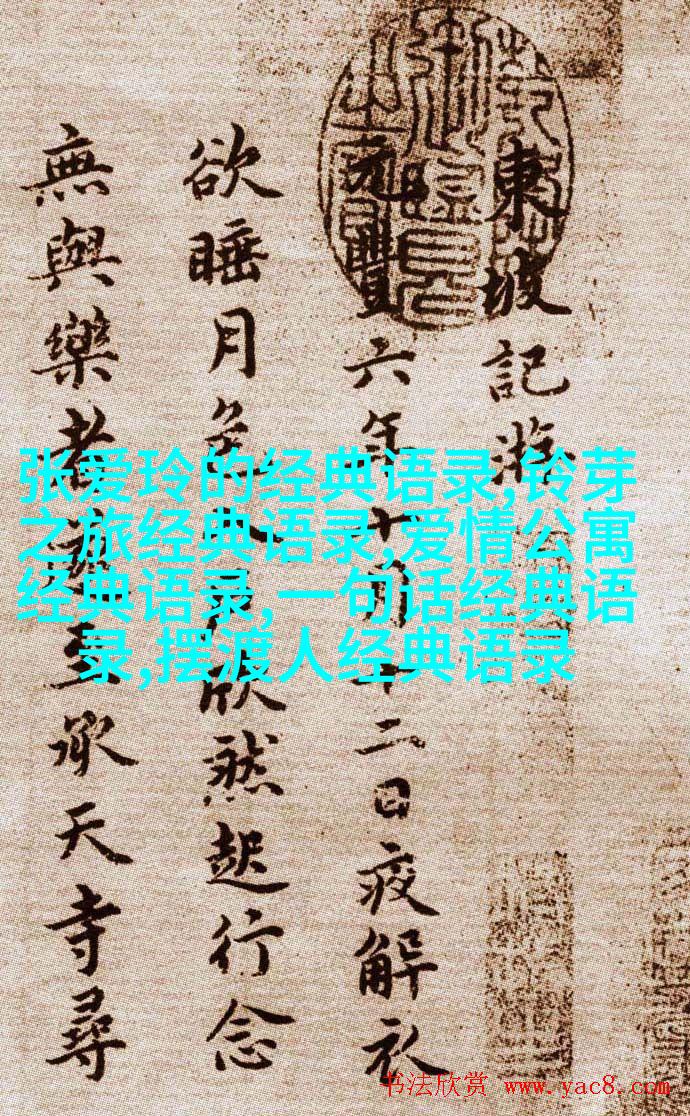 東坡記遊
元豐六年十月十二日夜解衣
欲睡月色欣然起行念
無與樂者遂至承天寺尋
张爱玲的经典语录,铃芽
之旅经典语录,爱情公寓
经典语录,一句话经典语
录,摆渡人经典语录
书法欣赏 www.yac8.com